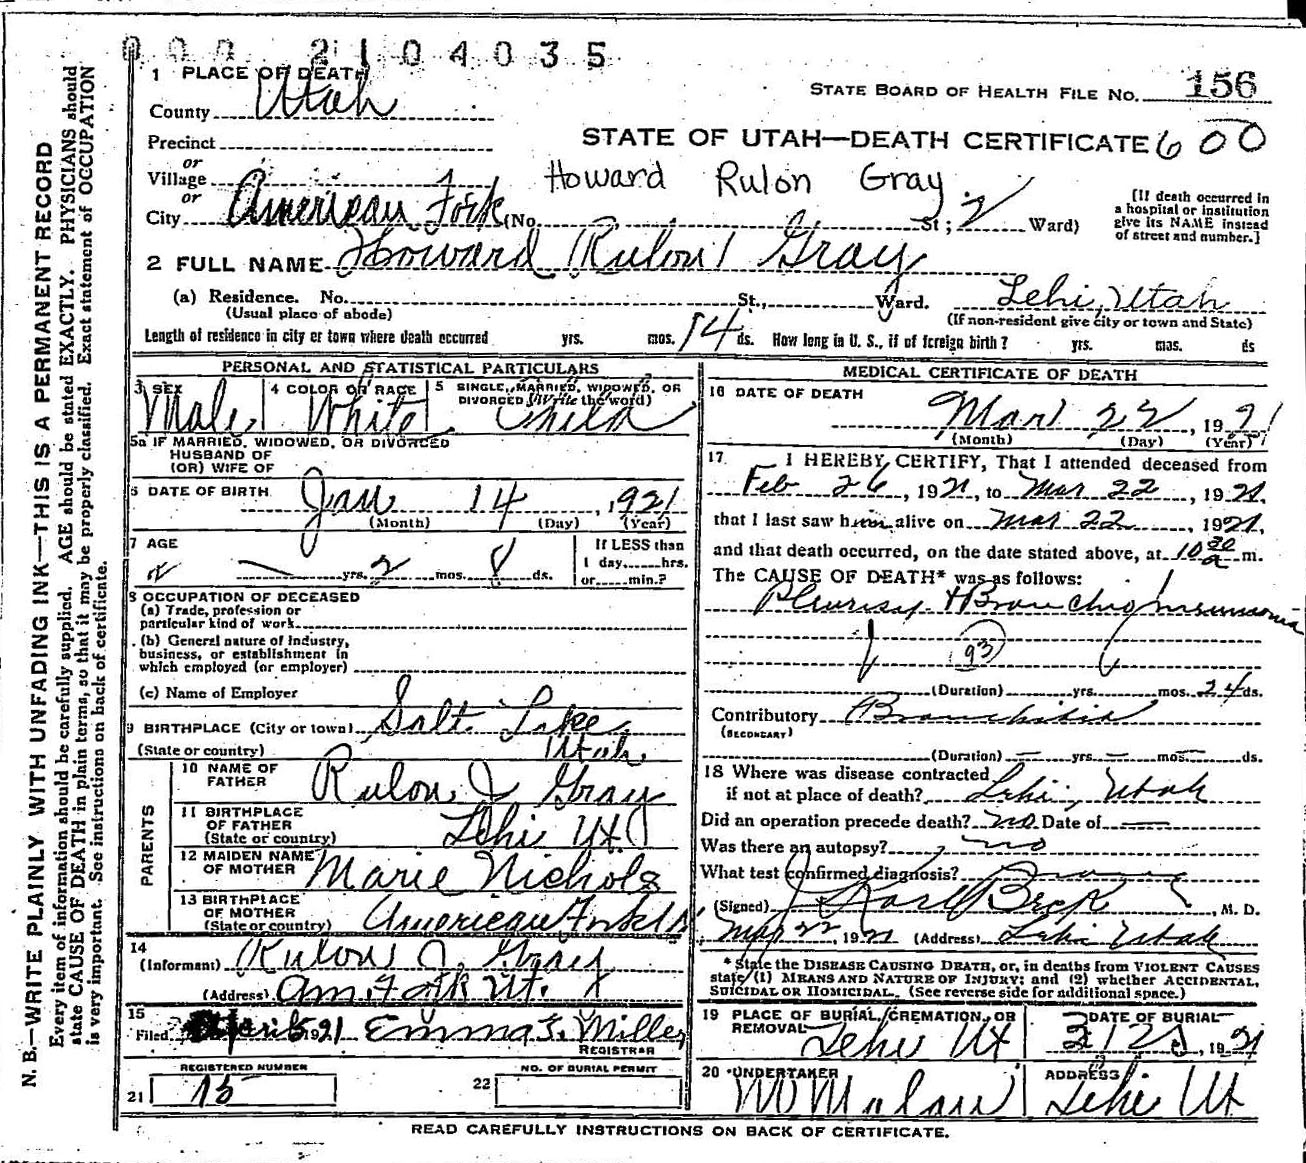 000 2104035
1 PLACE OF DEATH
STATE BOARD OF HEALTH FILE NO. 156
County Utah
Precinct
STATE OF UTAH—DEATH CERTIFICATE 600
or
Village
Howard Rulon Gray
or
City American Fork (No. St; 2 Ward)
[If death occurred in a hospital or institution give its NAME instead of street and number.]
2 FULL NAME Howard (Rulon) Gray
(a) Residence. No. St., Ward. Lehi, Utah
(Usual place of abode) (If non-resident give city or town and State)
Length of residence in city or town where death occurred yrs. mos. 14 ds. How long in U. S., if of foreign birth? yrs. mos. ds
PERSONAL AND STATISTICAL PARTICULARS
3 SEX Male
4 COLOR OR RACE White
5 SINGLE, MARRIED, WIDOWED, OR DIVORCED (Write the word) Child
5a IF MARRIED, WIDOWED, OR DIVORCED
HUSBAND OF
(OR) WIFE OF
6 DATE OF BIRTH Jan 14, 1921
(Month) (Day) (Year)
7 AGE yrs. 2 mos. 8 ds.
If LESS than
1 day, hrs.
or min.?
8 OCCUPATION OF DECEASED
(a) Trade, profession or
particular kind of work
(b) General nature of industry,
business, or establishment in
which employed (or employer)
(c) Name of Employer
9 BIRTHPLACE (City or town) Salt Lake
(State or country) Utah
PARENTS
10 NAME OF
FATHER Rulon J Gray
11 BIRTHPLACE
OF FATHER
(State or country) Lehi Ut
12 MAIDEN NAME
OF MOTHER Marie Nichols
13 BIRTHPLACE
OF MOTHER
(State or country) American Fork
14
(Informant) Rulon J. Gray
(Address) Am. Fork Ut.
15
Filed April 5 1921 Emma S. Miller
REGISTRAR
REGISTERED NUMBER
21 15
NO. OF BURIAL PERMIT
22
MEDICAL CERTIFICATE OF DEATH
16 DATE OF DEATH
Mar 22, 1921
(Month) (Day) (Year)
17 I HEREBY CERTIFY, That I attended deceased from
Feb 26, 1921, to Mar 22, 1921,
that I last saw him alive on Mar 22, 1921,
and that death occurred, on the date stated above, at 10 30 a m.
The CAUSE OF DEATH* was as follows:
Pleurisy + Bronchio pneumonia
93
(Duration) yrs. mos. 24 ds.
Contributory Bronchitis
(SECONDARY)
(Duration) — yrs. — mos. — ds.
18 Where was disease contracted
if not at place of death? Lehi, Utah
Did an operation precede death? no Date of —
Was there an autopsy? no
What test confirmed diagnosis?
(Signed) J Karl Beck, M. D.
Mar 22, 1921 (Address) Lehi Utah
* State the DISEASE CAUSING DEATH, or, in deaths from VIOLENT CAUSES
state (1) MEANS AND NATURE OF INJURY; and (2) whether ACCIDENTAL,
SUICIDAL OR HOMICIDAL. (See reverse side for additional space.)
19 PLACE OF BURIAL, CREMATION, OR
REMOVAL Lehi Ut
DATE OF BURIAL
1921
20 UNDERTAKER
ADDRESS
Lehi Ut
READ CAREFULLY INSTRUCTIONS ON BACK OF CERTIFICATE.
N. B.—WRITE PLAINLY WITH UNFADING INK—THIS IS A PERMANENT RECORD
Every item of information should be carefully supplied. AGE should be stated EXACTLY. PHYSICIANS should
state CAUSE OF DEATH in plain terms, so that it may be properly classified. Exact statement of OCCUPATION
is very important. See instructions on back of certificate.